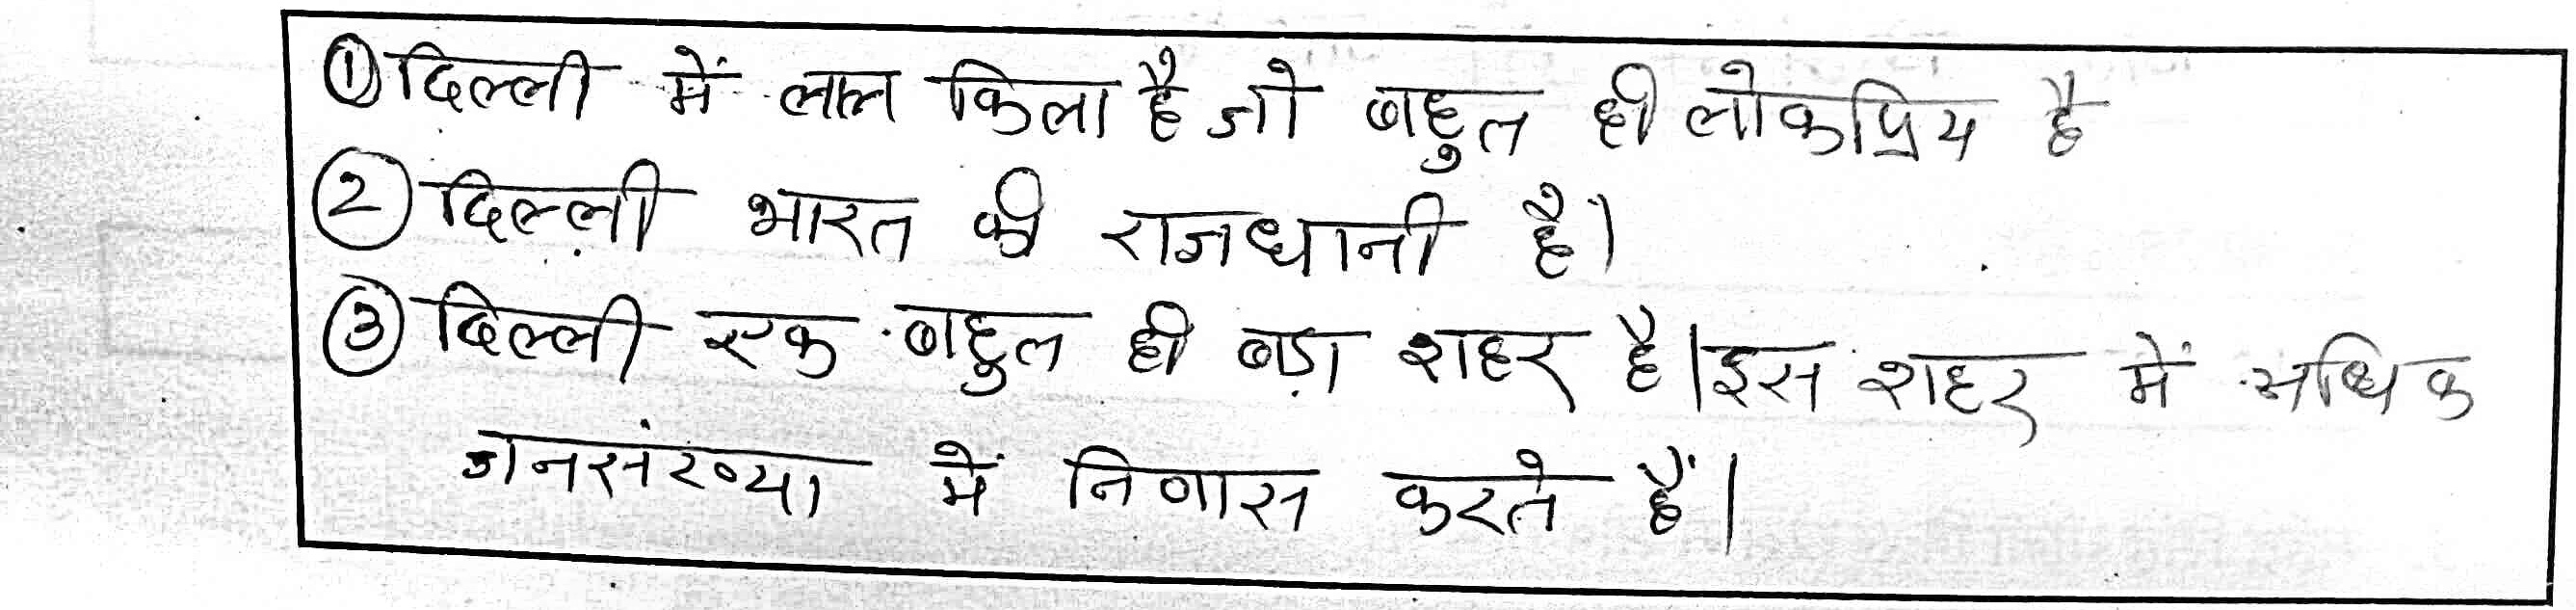 ① दिल्ली में लाल किला है जो बहुत ही लोकप्रिय है
② दिल्ली भारत की राजधानी है।
③ दिल्ली एक बहुत ही बड़ा शहर है। इस शहर में अधिक
जनसंख्या में निवास करते हैं।